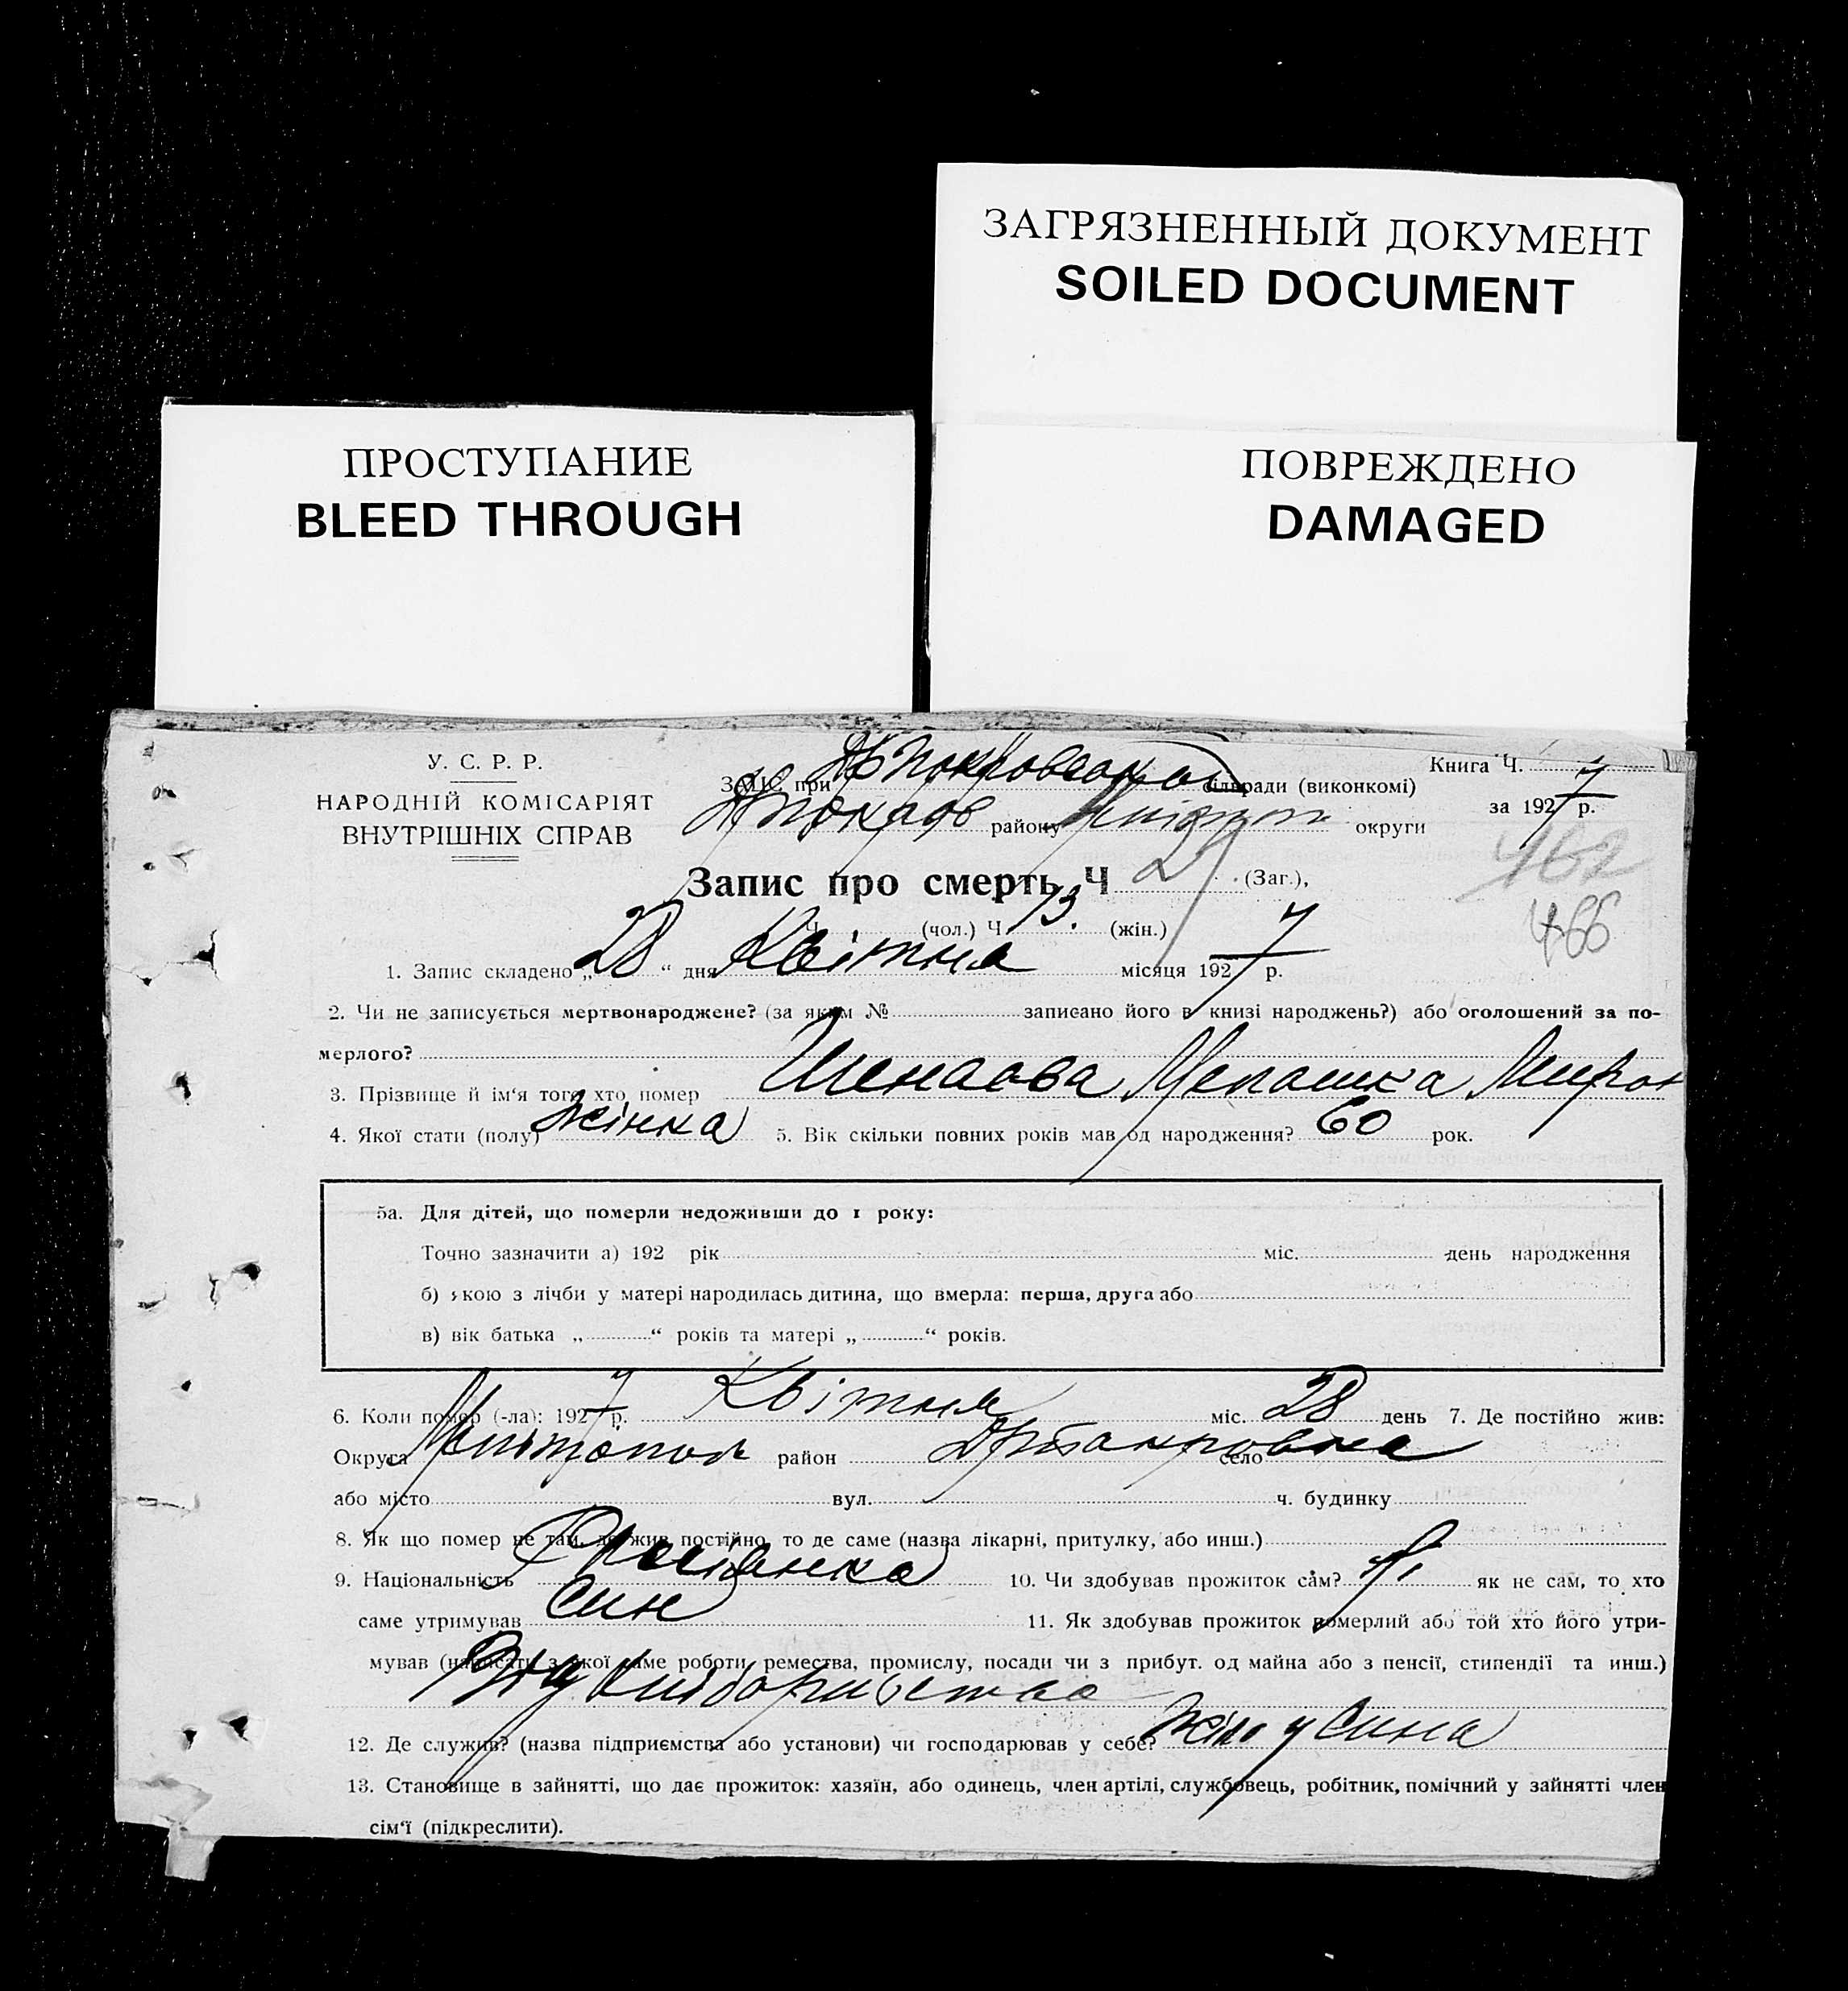 ЗАГРЯЗНЕННЫЙ ДОКУМЕНТ
SOILED DOCUMENT
ПРОСТУПАНИЕ
BLEED THROUGH
ПОВРЕЖДЕНО
DAMAGED
У. С. Р. Р.
НАРОДНІЙ КОМІСАРІЯТ
ВНУТРІШНІХ СПРАВ
ЗАГС при сільради (виконкомі)
району округи
Книга Ч.
за 1927 р.
462
466
Запис про смерть Ч 2 (Заг.),
Ч. (чол.) Ч. 13. (жін.)
1. Запис складено „28“ дня Квітня місяця 1927 р.
2. Чи не записується мертвонароджене? (за яким № записано його в книзі народжень?) або оголошений за по-
мерлого?
3. Прізвище й ім‘я того хто помер Мирон
4. Якої стати (полу) жінка 5. Вік скільки повних років мав од народження? 60 рок.
5а. Для дітей, що померли недоживши до 1 року:
Точно зазначити а) 192 рік міс. день народження
б) якою з лічби у матері народилась дитина, що вмерла: перша, друга або
в) вік батька „ “ років та матері „ “ років.
6. Коли помер (-ла): 1927 р. Квітня міс. 28 день 7. Де постійно жив:
Округа Мелітопол район село
або місто вул. ч. будинку
8. Як що помер не там, де жив постійно, то де саме (назва лікарні, притулку, або инш.)
9. Національність 10. Чи здобував прожиток сам? ні як не сам, то хто
саме утримував син 11. Як здобував прожиток померлий або той хто його утри-
мував (написати з якої саме роботи, ремества, промислу, посади чи з прибут. од майна або з пенсії, стипендії та инш.)
12. Де служив? (назва підприємства або установи) чи господарював у себе? у сина
13. Становище в зайнятті, що дає прожиток: хазяїн, або одинець, член артілі, службовець, робітник, помічний у зайнятті член
сім‘ї (підкреслити).